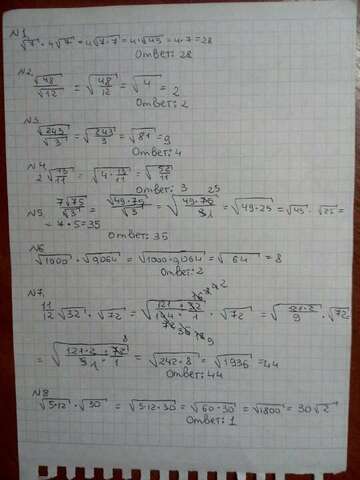 N1
√7 · 4√7 = 4√7·7 = 4√45 = 4·7 = 28
Ответ: 28
N2
√48/√12 = √48/12 = √4 = 2
Ответ: 2
N3
√243/√3 = √243/3 = √81 = 9
Ответ: 4
N4
2√13/11 = √4·13/11 = √52/11
Ответ: 3
N5. 7√75/√3 = √49·75/√3 = √49·75/3 = √49·25 = √49 · √25 =
25
1
= 7·5 = 35
Ответ: 35
N6
√1000 · √0,064 = √1000·0,064 = √64 = 8
Ответ: 2
N7.
11/12 √32 · √72 = √121·32/144·1 · √72 = √121·2/9 · √72
= √121·2·72/9·1 = √242·8 = √1936 = 44
8
1
Ответ: 44
N8
√5·12 · √30 = √5·12·30 = √60·30 = √1800 = 30√2
Ответ: 1